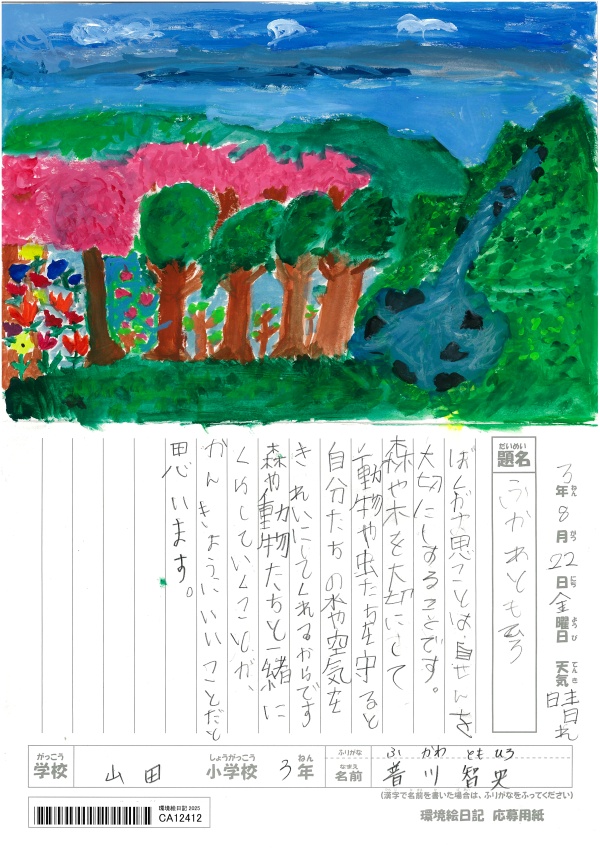 3年8月22日金曜日 天気 晴れ
ねん がつ にち ようび てんき
だいめい
題名
ふかあともひろ
ぼくが思ことは自せんを
大切にすることです。
森や木を大切にして
動物や虫たちを守ると
自分たちの水や空気を
きれいにしてくれるからです
森や動物たちと一緒に
くらしていくことが、
かんきょうにいいことだと
思います。
がっこう
学校
山田
しょうがっこう
小学校
3年
ねん
ふりがな
ふかわ ともひろ
なまえ
名前
普川 智央
(漢字で名前を書いた場合は、ふりがなをふってください)
環境絵日記 応募用紙
環境絵日記 2025
CA12412